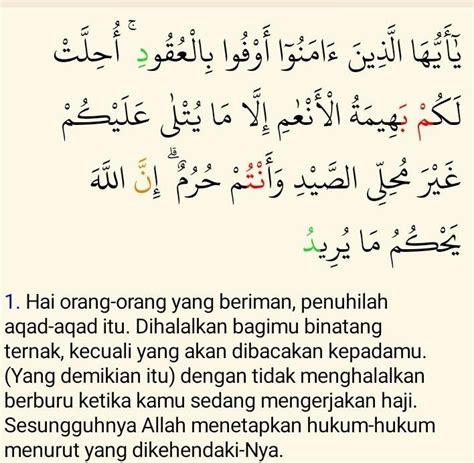 يَٰٓأَيُّهَا الَّذِينَ ءَامَنُوٓا أَوْفُوا بِالْعُقُودِ ۚ أُحِلَّتْ
لَكُمْ بَهِيمَةُ الْأَنْعَٰمِ إِلَّا مَا يُتْلَىٰ عَلَيْكُمْ
غَيْرَ مُحِلِّى الصَّيْدِ وَأَنْتُمْ حُرُمٌ ۗ إِنَّ اللَّهَ
يَحْكُمُ مَا يُرِيدُ
1. Hai orang-orang yang beriman, penuhilah
aqad-aqad itu. Dihalalkan bagimu binatang
ternak, kecuali yang akan dibacakan kepadamu.
(Yang demikian itu) dengan tidak menghalalkan
berburu ketika kamu sedang mengerjakan haji.
Sesungguhnya Allah menetapkan hukum-hukum
menurut yang dikehendaki-Nya.